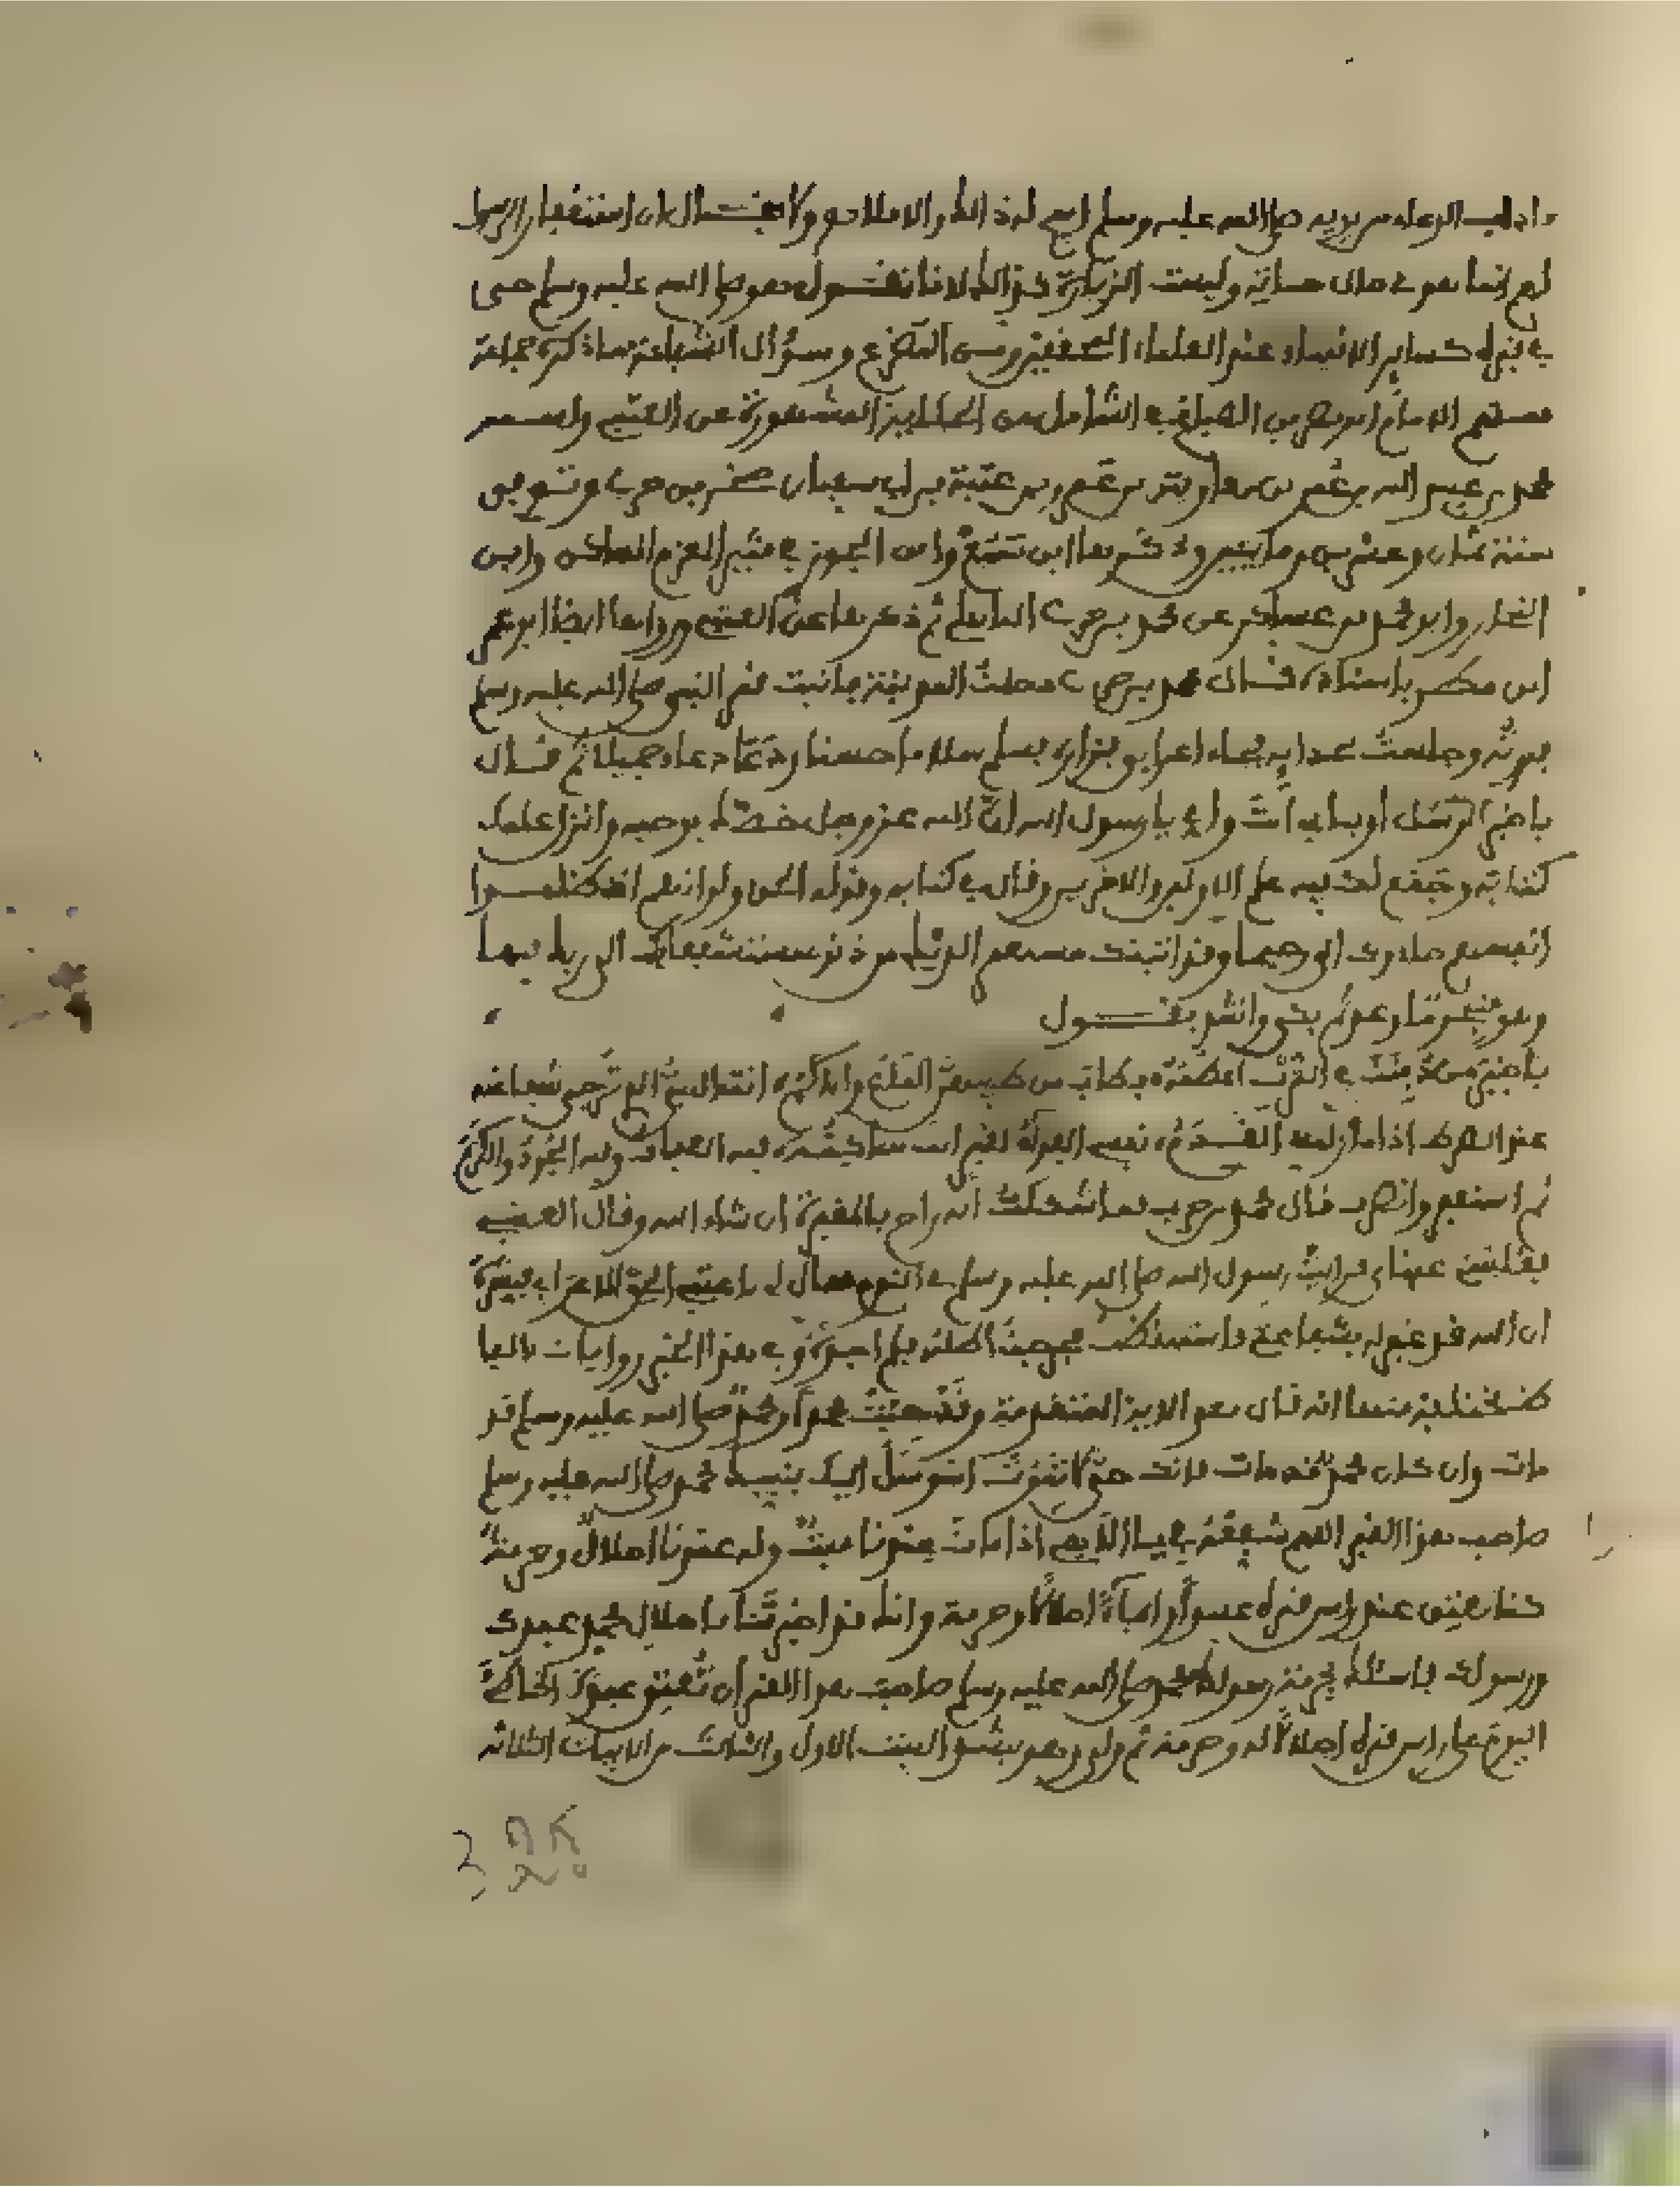 واداب الدعاء من بين يديه صلى الله عليه وسلم ارجى لهذا الظن والاملا حو ولا يقال ان استغفار الرسول
لهم انما هو في حال حياته وليست الزيارة كذالك لانا نقول هو صلى الله عليه وسلم حي
في قبره كساير الانبياء عند العلماء المحققين ومن التضرع وسؤال الشفاعة ما ذكره جماعة
منهم الامام ابو نصر بن الصباغ في الشامل من الحكاية المشهورة عن العتبي واسمه
محمد بن عبيد الله بن عمرو بن معاوية بن عمرو بن عتبة بن ابي سفيان صخر بن حرب وتوفي
سنة ثمان وعشرين ومايتين وذكرها ابن وابن الجوزي في مثير العزم الساكن وابن
النجار وابو محمد بن عساكر عن محمد بن حرب الباهلي ثم ذكرها عن العتبي ورواها ايضا ابو عمر
ابن مطكر باسناده فقال محمد بن حرب دخلت المدينة فاتيت قبر النبي صلى الله عليه وسلم
فزرته وجلست بحذايه فجاء اعرابي فزاره فسلم سلاما حسنا ودعا دعاء جميلا ثم قال
يا خير الرسل او بابي انت وامي يا رسول الله ان الله عز وجل خصك بوحيه وانزل عليك
كتابه وجمع لك فيه علم الاولين والاخرين وقال في كتابه وقوله الحق ولو انهم اذ ظلموا
انفسهم جاءوك الى رحيما وقد اتيتك مستغفرا لربك من ذنوبي مستشفعا بك الى ربك فيها
وهو منجز ما وعد ثم بكى وانشد يقول
يا خير من دفنت في الترب اعظمه فطاب من طيبهن القاع والاكم انت النبي الذي ترجى شفاعته
عند الصراط اذا ما زلت القدم نفسي الفداء لقبر انت ساكنه فيه العفاف وفيه الجود والكرم
ثم استغفر وانصرف قال محمد بن حرب فما اشك انه راح بالمغفرة ان شاء الله وقال العتبي
فغلبتني عيناي فرايت رسول الله صلى الله عليه وسلم في النوم فقال لي يا عتبي الحق الاعرابي فبشره
ان الله قد غفر له بشفاعتي فاستيقظت فخرجت اطلبه فلم اجده وفي هذا الخبر روايات بالفا
ظ مختلفة منها انه قال بعد الاية المتقدمة وقد جئت محمدا ومحمد صلى الله عليه وسلم قد
مات وان كان محمد قد مات فانت حي لا تموت اتوسل اليك بنبيك محمد صلى الله عليه وسلم
صاحب هذا القبر اللهم شفعه في يا الاهي اذا مات عندنا ميت وله عندنا اجلال وحرمة
كنا نعتق عند راس قبره عبيدا واماء اجلالا وحرمة وانك قد اخبرتنا باجلال محمد عبدك
ورسولك فاسئلك بحرمة رسولك محمد صلى الله عليه وسلم صاحب هذا القبر ان تعتق عبدك الخاطئ
اليوم على راس قبره اجلالا له وحرمة ثم ولى وهو ينشد البيت الاول والثالث من الابيات الثلاثة